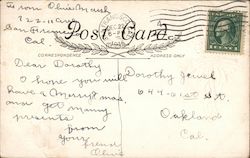 From Olive Mash
722-11 ave
San Francisco
Cal
Post Card
CORRESPONDENCE
ADDRESS ONLY
Dear Dorothy
I hope you will
have a Merry Xmas
and get many
presents
from
Your
friend
Olive
Dorothy Jewel
644-21st St.
Oakland
Cal.